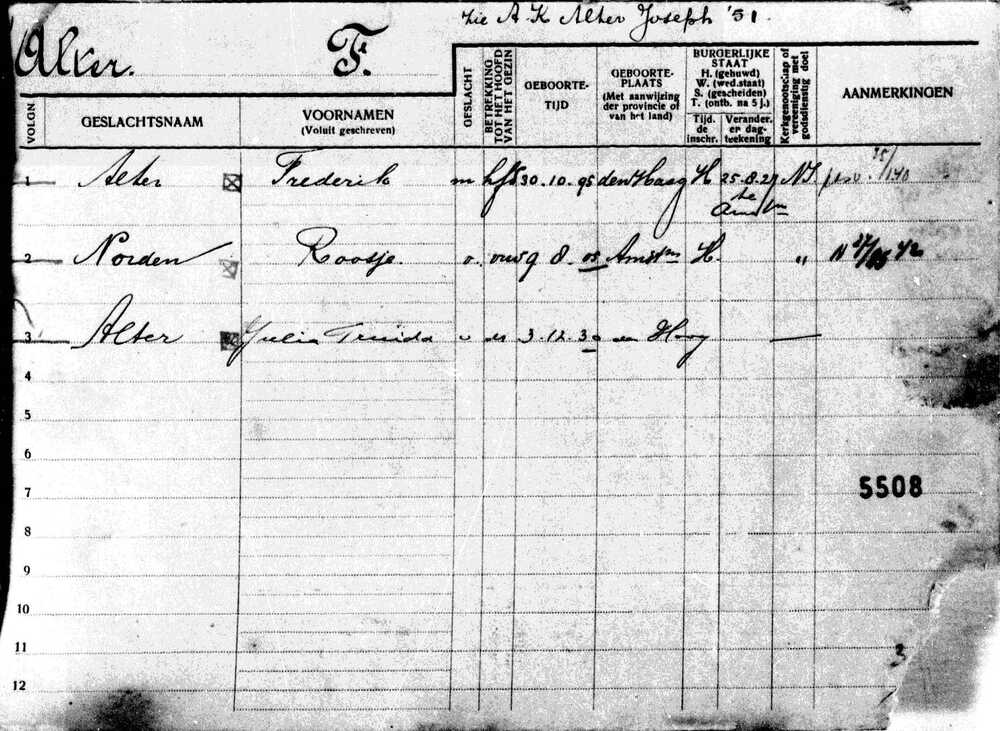 zie A K Alter Joseph '51.
Alter. F.
VOLGN. GESLACHTSNAAM VOORNAMEN (Voluit geschreven) GESLACHT BETREKKING TOT HET HOOFD VAN HET GEZIN GEBOORTE-TIJD GEBOORTE-PLAATS (Met aanwijzing der provincie of van het land) BURGERLIJKE STAAT H. (gehuwd) W. (wed.staat) S. (gescheiden) T. (ontb. na 5 j.) Tijd. de inschr. Verander. er dag-teekening Kerkgenootschap of vereeniging met godsdienstig doel AANMERKINGEN
1 Alter Frederik m hfd 30.10.95 den Haag H 25.8.27 te Amstm N.I.
2 Norden Roosje v. vrw 9 8.05 Amstm H. "
3 Alter Julia Truida v ds 3.12.30 den Haag —
4
5
6
7 5508
8
9
10
11 3
12